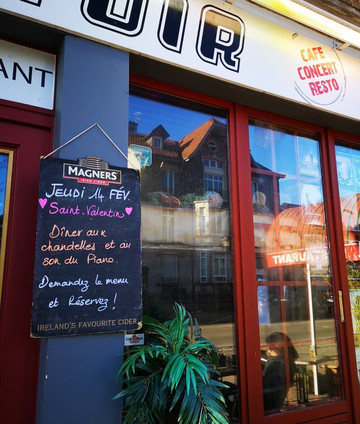 OIR
CAFE
CONCERT
RESTO
ANT
MAGNERS
IRISH CIDER
JEUDI 14 FÉV.
Saint-Valentin
Dîner aux
chandelles et au
son du Piano.
Demandez le menu
et Réservez !
IRELAND'S FAVOURITE CIDER